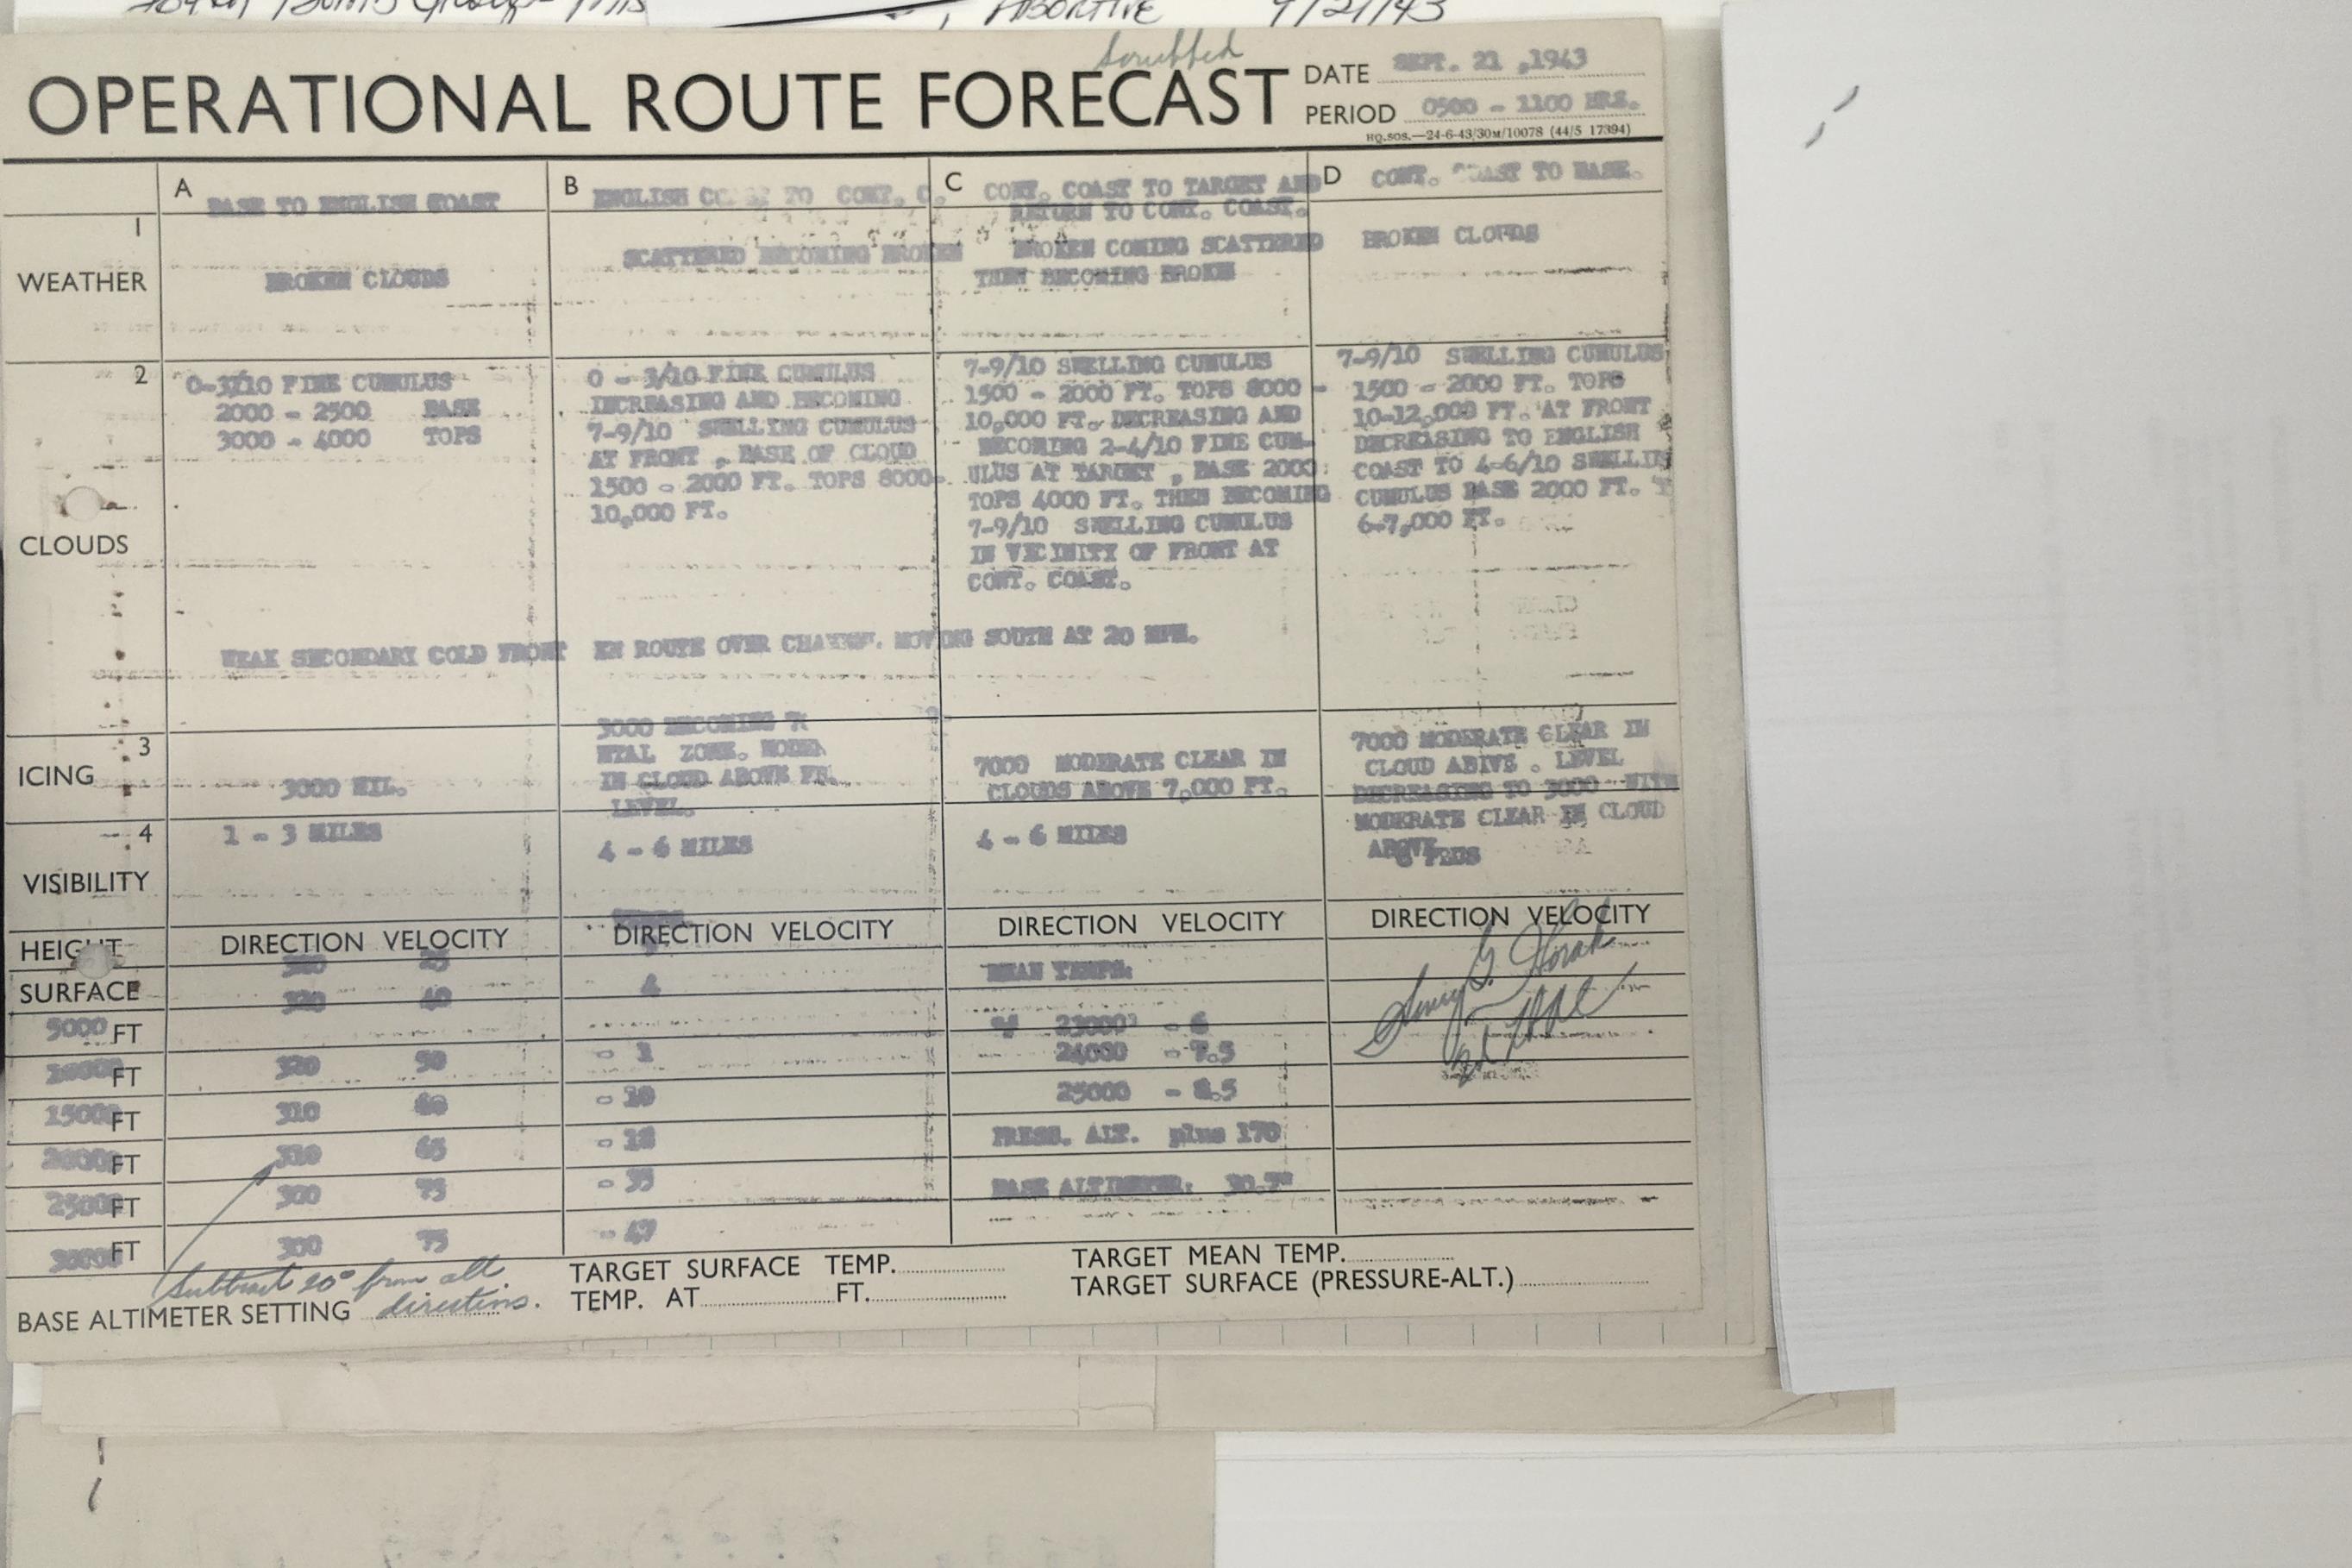 ABORTIVE 9/21/43
Scrubbed
OPERATIONAL ROUTE FORECAST
DATE SEPT. 21 ,1943
PERIOD 0500 - 1100 HRS.
HQ.SOS.—24-6-43/30M/10078 (44/5 17394)
A BASE TO ENGLISH COAST
B ENGLISH TO CONT. C.
C CONT. COAST TO TARGET AND
RETURN TO CONT. COAST.
D CONT. COAST TO BASE.
1
WEATHER
BROKEN CLOUDS
SCATTERED BECOMING BROKEN
BROKEN COMING SCATTERED
THEN BECOMING BROKEN
BROKEN CLOUDS
2
CLOUDS
0-3/10 FINE CUMULUS
2000 - 2500 BASE
3000 - 4000 TOPS
0 - 3/10 FINE CUMULUS
INCREASING AND BECOMING
7-9/10 SWELLING CUMULUS
AT FRONT , BASE OF CLOUD
1500 - 2000 FT. TOPS 8000-
10,000 FT.
7-9/10 SWELLING CUMULUS
1500 - 2000 FT. TOPS 8000 -
10,000 FT. DECREASING AND
BECOMING 2-4/10 FINE CUM-
ULUS AT TARGET , BASE 2000
TOPS 4000 FT. THEN BECOMING
7-9/10 SWELLING CUMULUS
IN VICINITY OF FRONT AT
CONT. COAST.
7-9/10 SWELLING CUMULUS
1500 - 2000 FT. TOPS
10-12,000 FT. AT FRONT
DECREASING TO ENGLISH
COAST TO 4-6/10 SWELLIN
CUMULUS BASE 2000 FT. T
6-7,000 FT.
WEAK SECONDARY COLD FRONT EN ROUTE OVER CHANNEL MOVING SOUTH AT 20 MPH.
3
ICING
3000 NIL.
3000 BECOMING 7
NTAL ZONE. MODER
IN CLOUD ABOVE FR.
LEVEL.
7000 MODERATE CLEAR IN
CLOUDS ABOVE 7,000 FT.
7000 MODERATE CLEAR IN
CLOUD ABIVE . LEVEL
DECREASING TO 3000 WITH
MODERATE CLEAR IN CLOUD
ABOVE
4
VISIBILITY
1 - 3 MILES
4 - 6 MILES
4 - 6 MILES
6 PLUS
HEIGHT DIRECTION VELOCITY DIRECTION VELOCITY DIRECTION VELOCITY DIRECTION VELOCITY
25
MEAN TEMPS:
SURFACE 320 40 4
5000 FT 23000' - 6
FT 320 50 - 1 24000 - 7.5
15000 FT 310 60 25000 - 8.5
20000 FT 310 65 PRESS. ALT. plus 170
25000 FT 300 75 - 35 BASE ALTIMETER:
30000 FT 300 75
Henry G. Horak
2d Lt AC
Subtract 20° from all
directions.
BASE ALTIMETER SETTING
TARGET SURFACE TEMP.
TEMP. AT FT.
TARGET MEAN TEMP.
TARGET SURFACE (PRESSURE-ALT.)